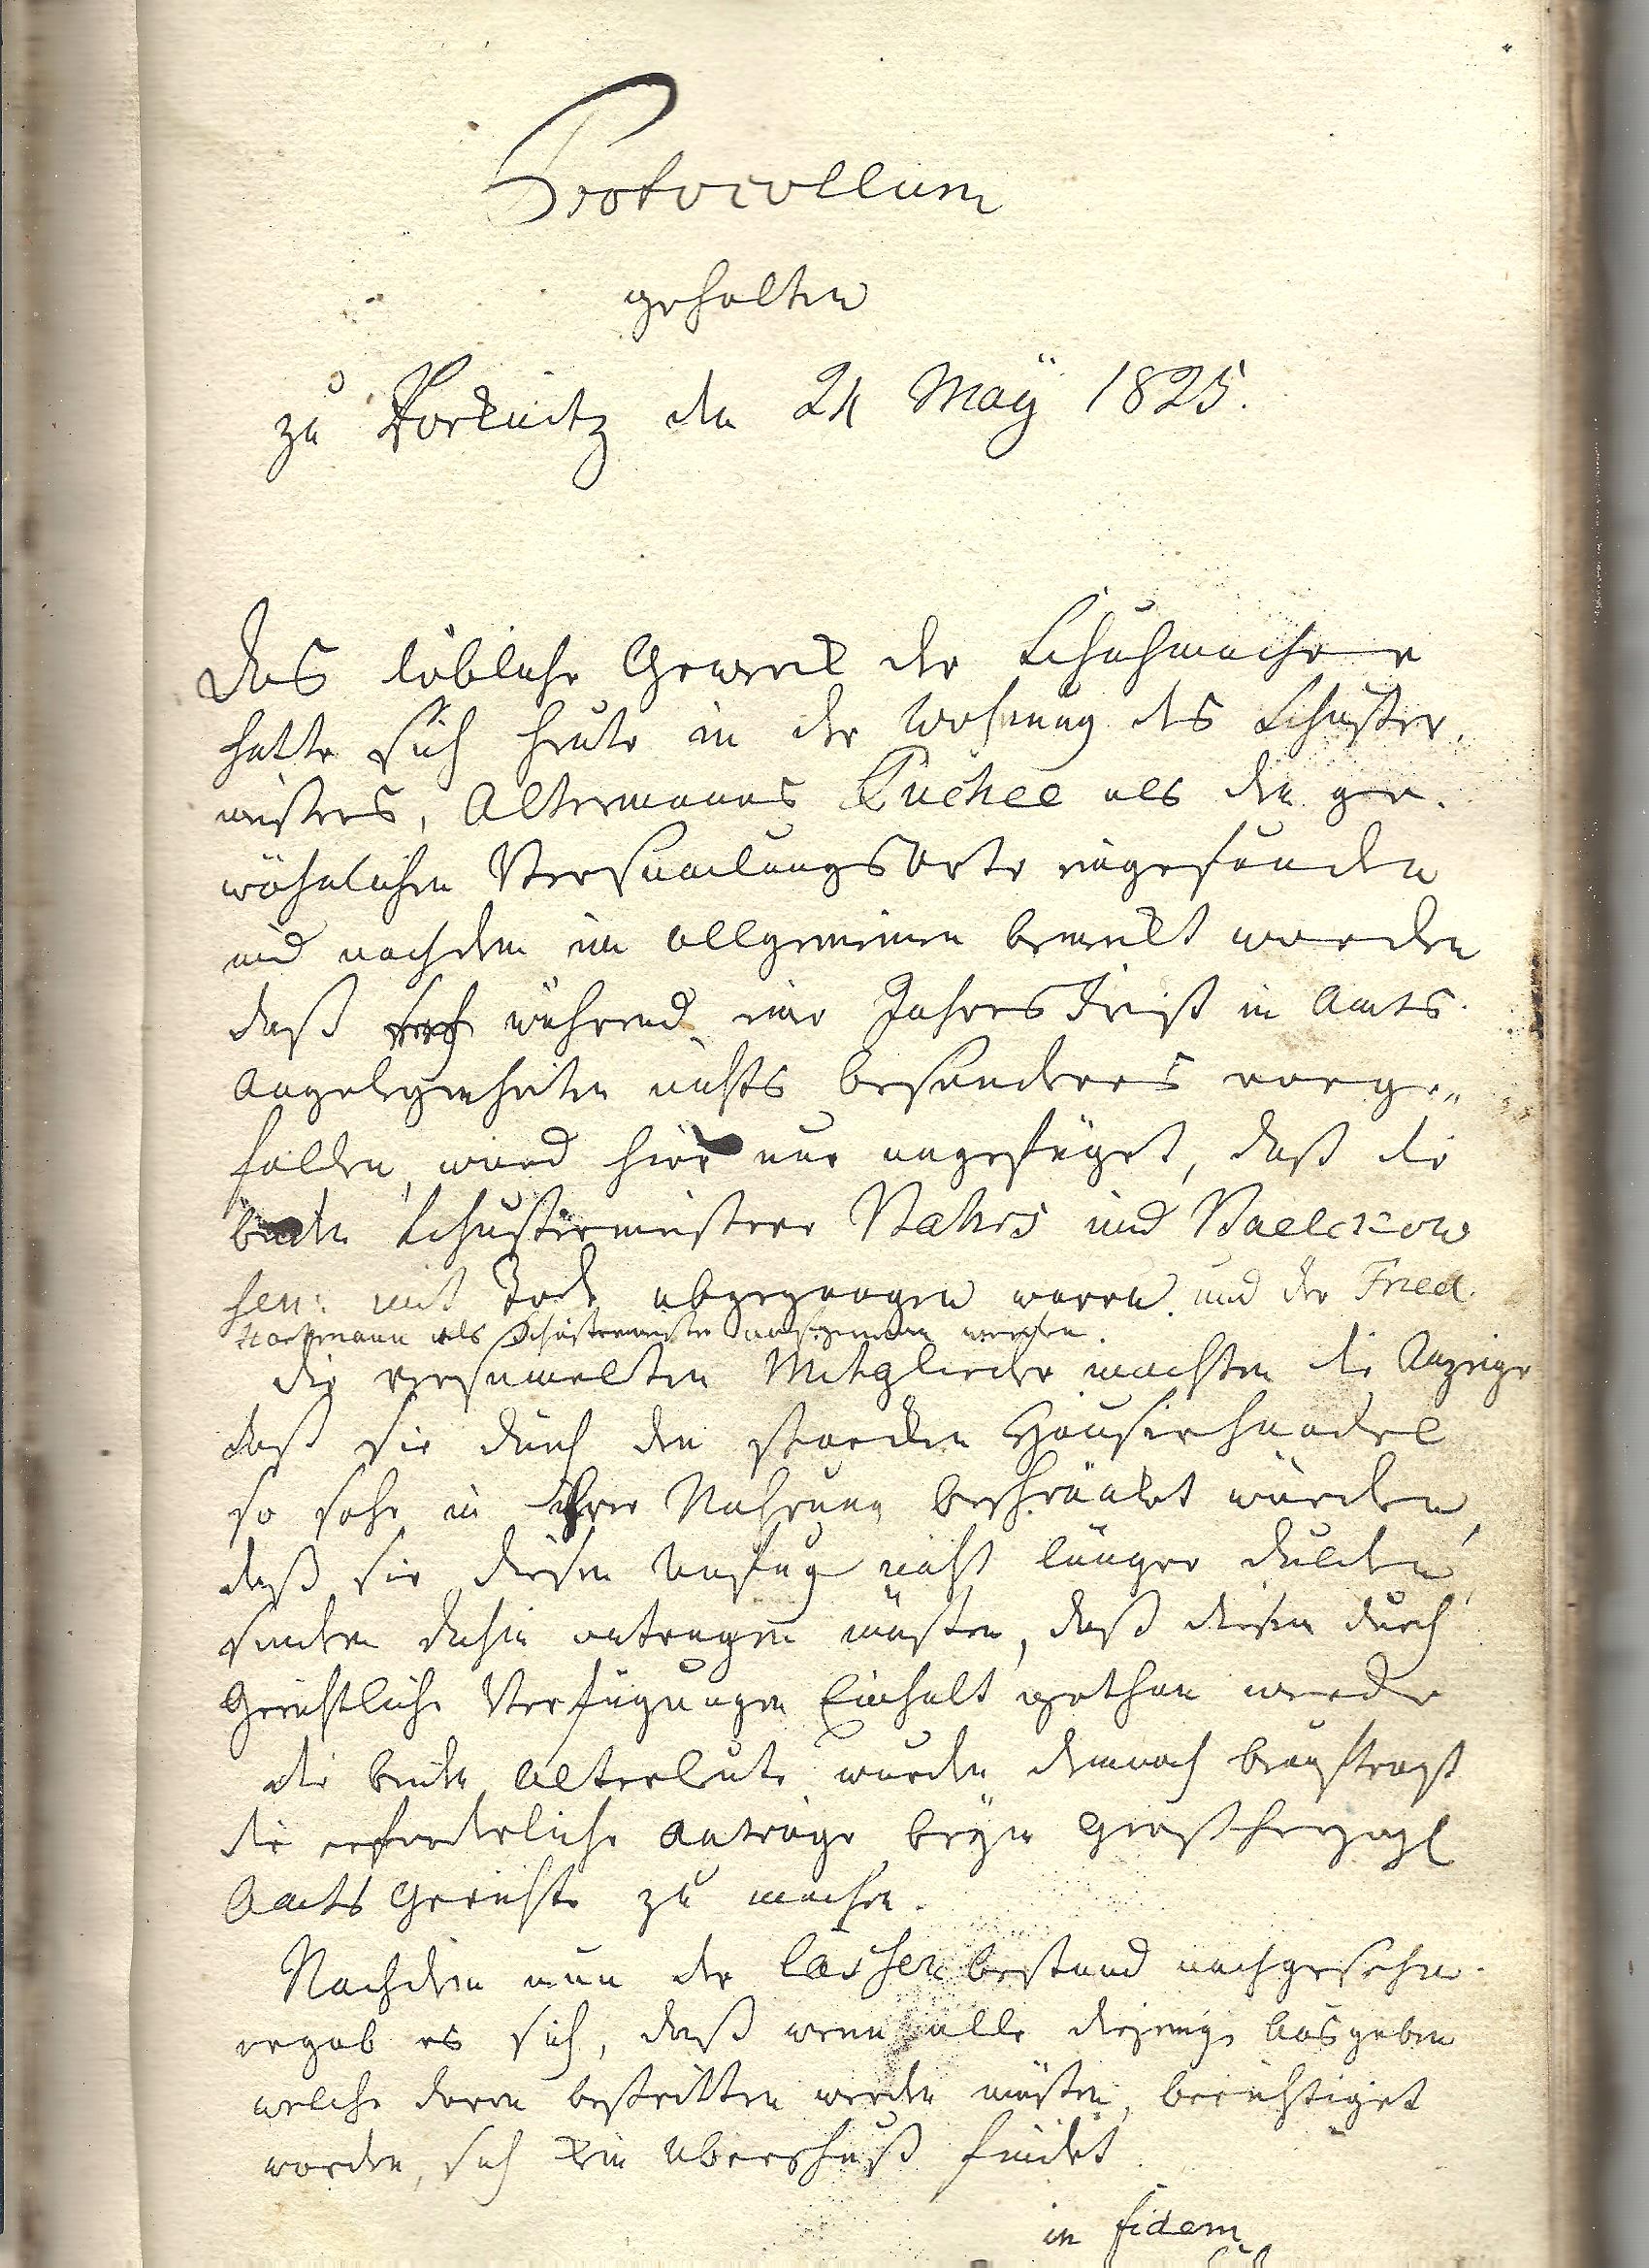 Protocollum
gehalten
zu den 24 Maÿ 1825.
Das löbliche Gewerk der Schuhmacher
hatte sich heute in der Wohnung des Schuster,
meisters, Altermanns als den ge,
wöhnlichen Versamlungsorte eingefunden
und nachdem im allgemeinen bemerkt worden
daß während einer Jahres Frist in Amts
Angelegenheiten nichts besonderes vorge„
fallen, ward hier nur angefüget, daß die
beiden Schustermeister Stahrs und
sen: mit Tode abgegangen waren und der Fried.
als Schustermeister aufgenommen worden.
die versamelten Mitglieder machten die Anzeige
daß sie durch den starken Hausierhandel
so sehr in ihrer Nahrung beschränkt würden,
daß sie diesen Unfug nicht länger dulden,
sondern dahin antragen müsten, daß diesem durch
Gerichtliche Verfügungen Einhalt gethan werde
die beiden Alterleute wurden demnach beauftragt
die erforderliche Anträge beÿm Großherzogl
Amts Gerichte zu machen.
Nachdem nun der Cassen bestand nachgesehen
ergab es sich, daß wenn alle diejenige Ausgaben
welche davon bestritten werden müsten, berichtiget
worden, sich kein Uberschuß findet
in fidem